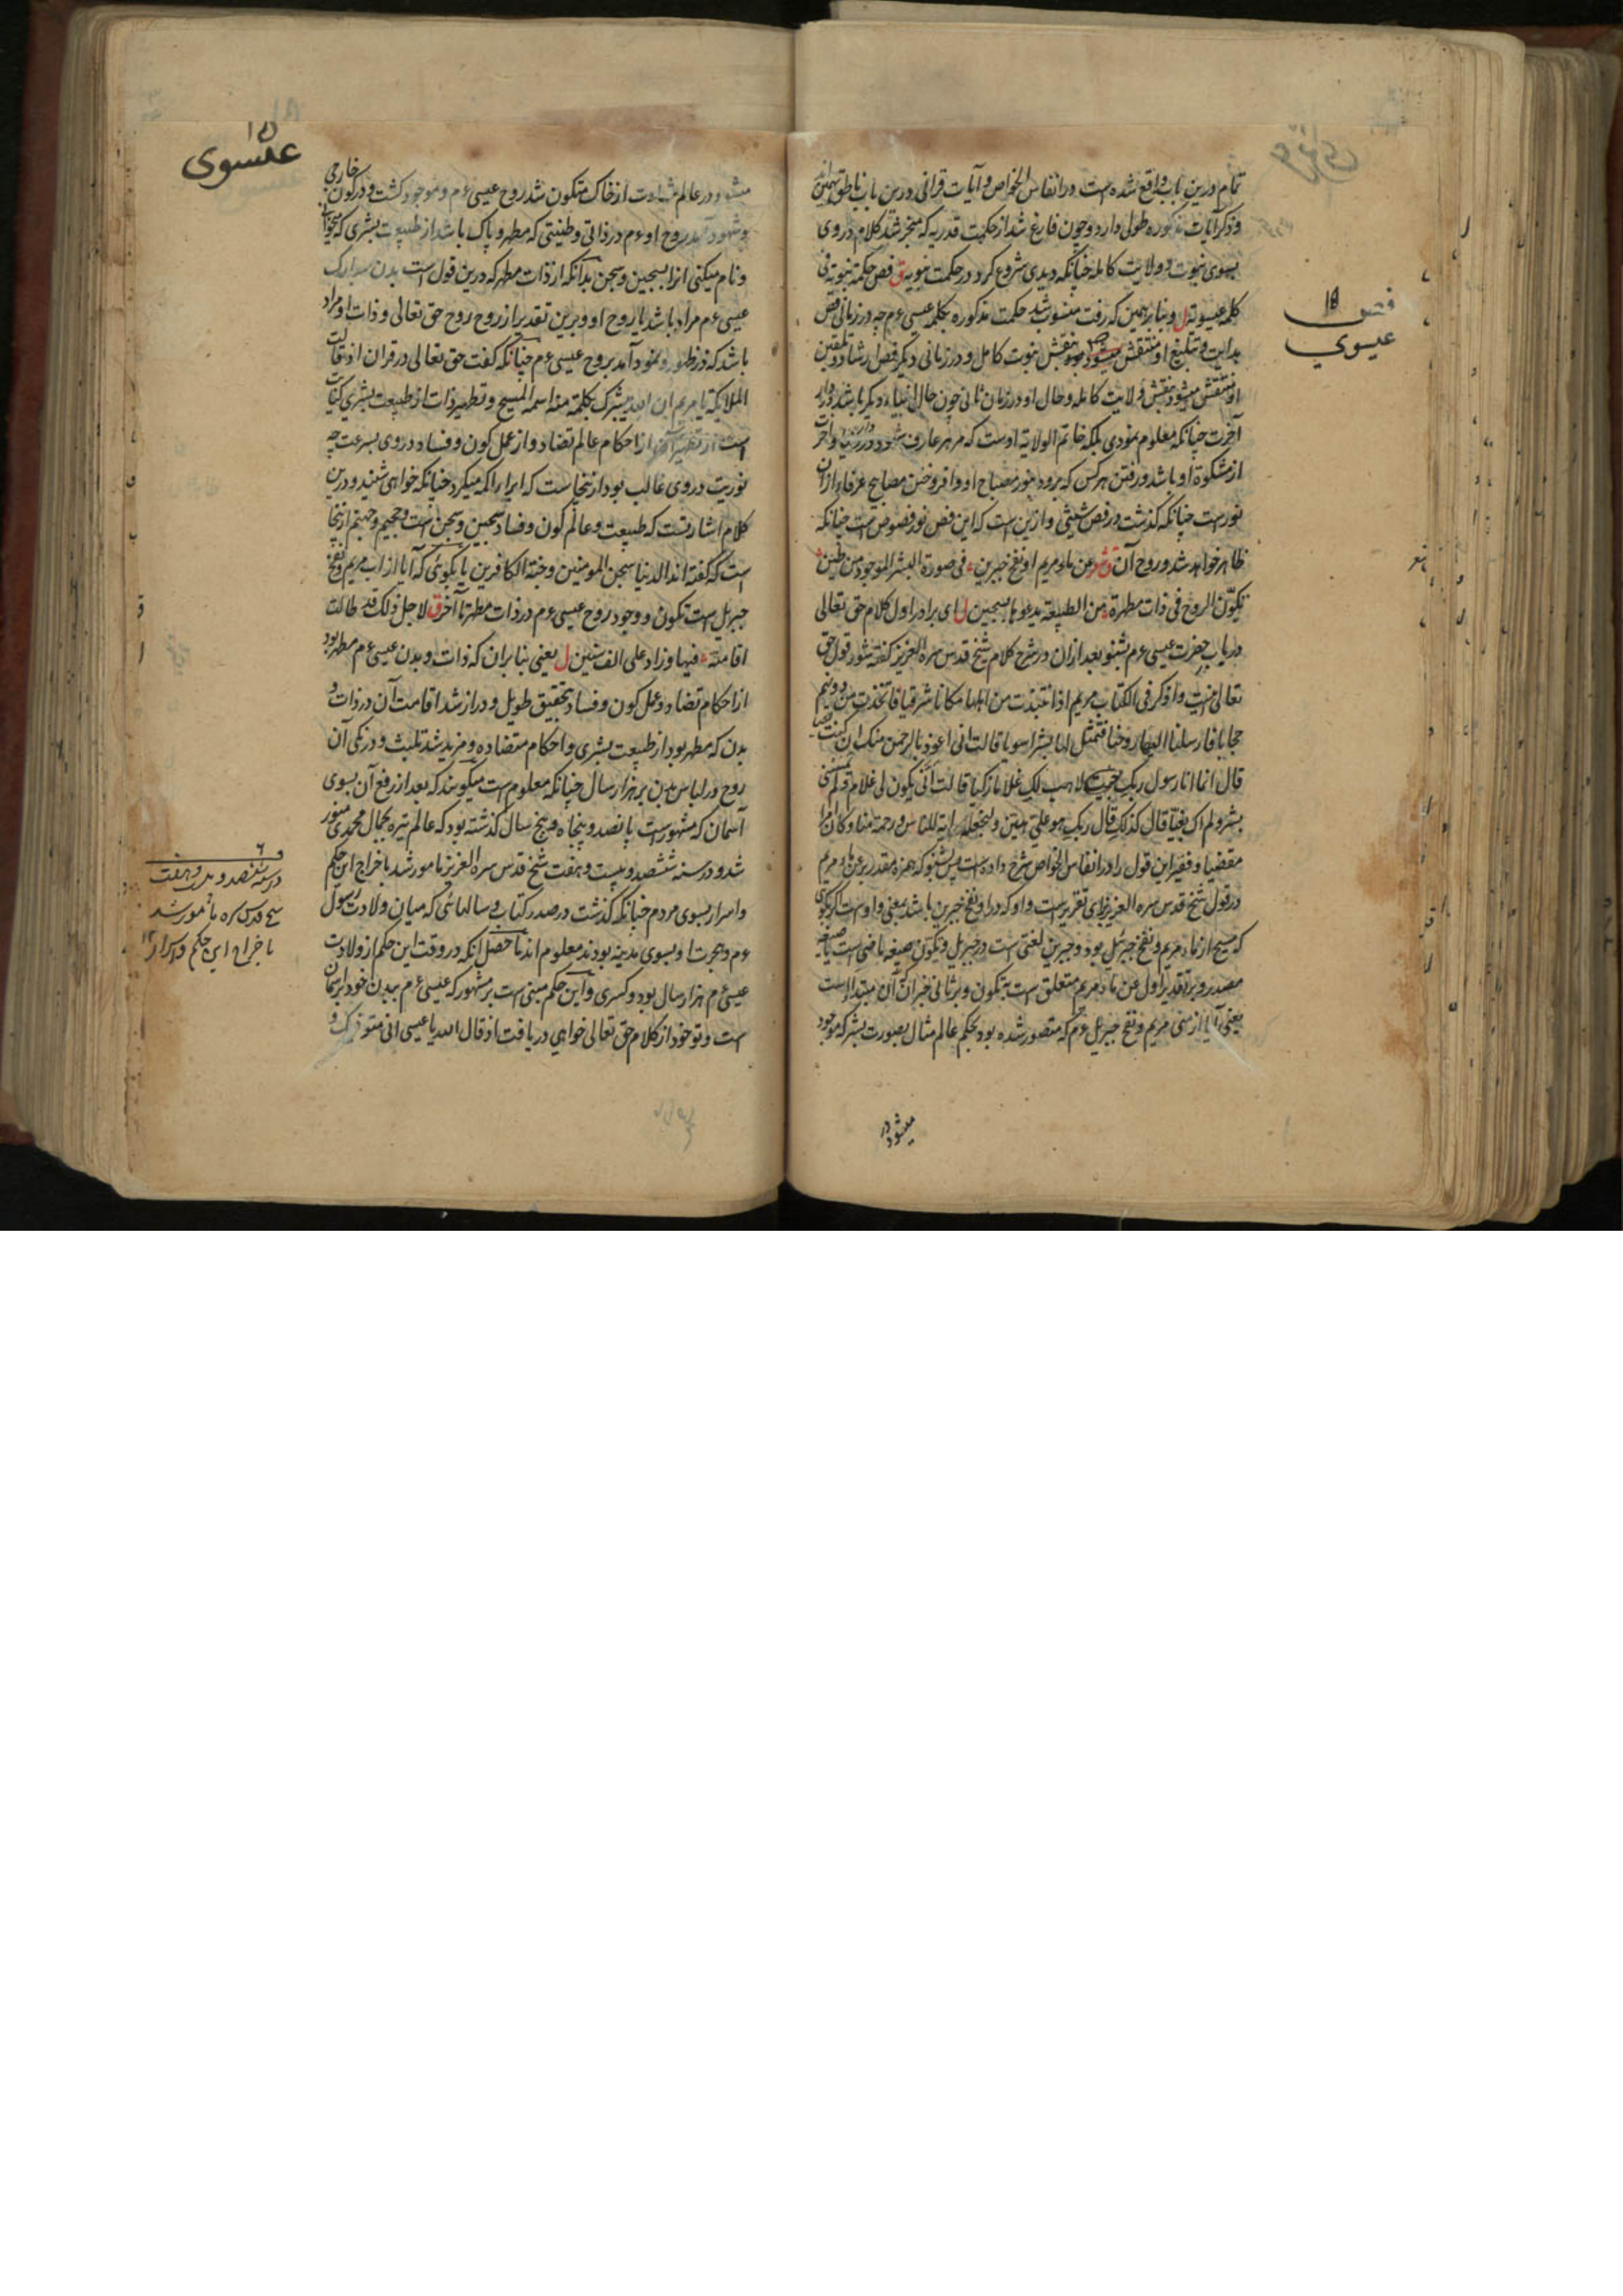 تمام درین باب واقع شده است در انفاس الخواص و آیات قرانی درین باب ناطق
و ذکر آیات مذکوره طولی دارد و چون فارغ شد از حکمت قدریه که منجر شد کلام در وی
بسوی نبوت و ولایت کامله چنانکه دیدی شروع کرد در حکمت نبویه ق فص حکمة نبویة فی
کلمه عیسویة ل و بنا بر همین که رفت منسوب شد حکمت مذکوره بکلمه عیسی ءم چه در زمانی فص
بدایت و تبلیغ او منتقش میشود بنقش نبوت کامل و در زمانی دیگر فص ارشاد و تلقین
او منتقش میشود بنقش ولایت کامله و حال او در زمان ثانی چون حال انبیاء دیگر باشد در دار
آخرت چنانکه معلوم نمودی بلکه خاتم الولایة اوست که مر هر عارف شود در دنیا و آخرت
از مشکوة او باشد و رفتن هر کس که برود بنور مصباح او و افروختن مصابیح عرفاء از ان
نور است چنانکه گذشت در فص شیثی و ازین است که این فص نور فصوص است چنانکه
ظاهر خواهد شد و روح آن ق شعر عن ماء مریم او نفخ جبرین ء فی صورة البشر الموجود من طین ء
تکوّن الروح فی ذات مطهرة ء من الطبیعة یدعوها بسجین ل ای برادر اول کلام حق تعالی
در باب حضرت عیسی ءم بشنو بعد ازان در شرح کلام شیخ قدس سره العزیز گفته شود قول حق
تعالی و اذکر فی الکتاب مریم اذ انتبذت من اهلها مکانا شرقیا فاتخذت من دونهم
حجابا فارسلنا الیها روحنا فتمثل لها بشرا سویا قالت انی اعوذ بالرحمن منک ان کنت تقیا
قال انما انا رسول ربک لاهب لک غلاما زکیا قالت انّی یکون لی غلام و لم یمسسنی
بشر و لم اک بغیّا قال کذلک قال ربک هو علیّ هیّن و لنجعله ایة للناس و رحمة منا و کان امرا
مقضیا و فقیر این قول را در انفاس الخواص شرح داده است پس بشنو که همزه مقدر بر عن ماء مریم
در قول شیخ قدس سره العزیز برای تقریر است و او که در او نفخ جبرین باشد بمعنی واو است اگر گوئی
که مسیح از ماء مریم و نفخ جبرئیل بود و جبرین لغتی است در جبریل و تکوّن صیغه ماضی است یا صیغه
مصدر و بر تقدیر اول عن ماء مریم متعلق است به تکون و بر ثانی خبر ان که آن مبتدا است
یعنی آیا از منی مریم و نفخ جبریل ءم که متصور شده بود بحکم عالم مثال بصورت بشر که موجود
میشود در
فص ١٥
عیسوی
میشود در عالم شهادت از خاک متکون شد روح عیسی ءم و موجود گشت و در کون خارجی
و شهود آمد روح او ءم در ذاتی و طینتی که مطهر و پاک باشد از طبیعت بشری که میخوانی
و نام میکنی انرا بسجین و سجن بدانکه از ذات مطهر که درین قول است بدن مبارک
عیسی ءم مراد باشد یا روح او و برین تقدیر از روح روح حق تعالی و ذات او مراد
باشد که در ظهور و نمود آمد بروح عیسی ءم چنانکه گفت حق تعالی در قران اذ قالت
الملائکة یا مریم ان الله یبشرک بکلمة منه اسمه المسیح و تطهیر ذات از طبیعت بشری کنایت
است از تطهیر آن از احکام عالم تضاد و از عمل کون و فساد در وی بسرعت چه
نوریت در وی غالب بود ازینجاست که ابراء اکمه میکرد چنانکه خواهی شنید و درین
کلام اشارتست که طبیعت و عالم کون و فساد سجین و سجن است و جحیم و جهنم ازینجا
است که گفته اند الدنیا سجن المومنین و جنة الکافرین یا بگوئی که آیا از آب مریم و نفخ
جبریل است تکون و وجود روح عیسی ءم در ذات مطهر تا آخر ق لاجل ذلک قد طالت
اقامته ء فیها و زاد علی الف سنین ل یعنی بنا بران که ذات و بدن عیسی ءم مطهر بود
از احکام تضاد و عمل کون و فساد بتحقیق طویل و دراز شد اقامت آن در ذات و
بدن که مطهر بود از طبیعت بشری و احکام متضاده و مزید شد تلبث و درنگی آن
روح در لباس بدن بر هزار سال چنانکه معلوم است میگویند که بعد از رفع آن بسوی
آسمان که مشهور است پانصد و پنجاه و پنج سال گذشته بود که عالم تیره بجمال محمدی منور
شد و در سنه ششصد و بیست و هفت شیخ قدس سره العزیز مامور شد باخراج این حکم
و اسرار بسوی مردم چنانکه گذشت در صدر کتاب و سالهائی که میان ولادت رسول
ءم و هجرت او بسوی مدینه بودند معلوم اند ماحصل آنکه در وقت این حکم از ولادت
عیسی ءم هزار سال بود و کسری و این حکم مبنی است بر مشهور که عیسی ءم ببدن خود بر آسمان
است و تو خود از کلام حق تعالی خواهی دریافت اذ قال الله یا عیسی انی متوفیک و
١٥
عیسوی
در سنه ششصد و بیست و هفت
شیخ قدس سره مامور شد
باخراج این حکم و اسرار ١٢